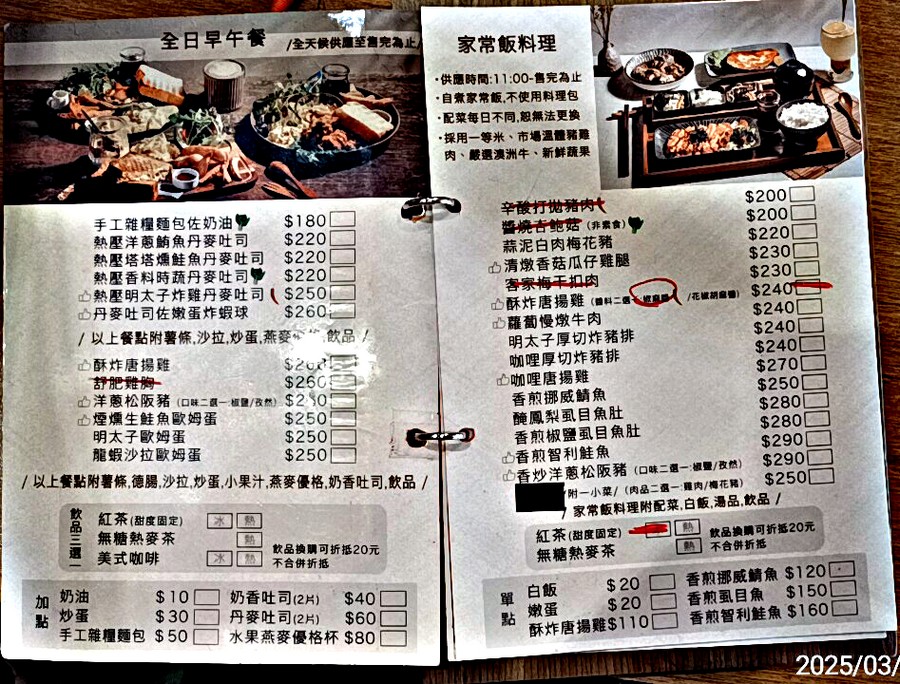 全日早午餐 /全天候供應至售完為止/
手工雜糧麵包佐奶油 $180
熱壓洋蔥鮪魚丹麥吐司 $220
熱壓塔塔燻鮭魚丹麥吐司 $220
熱壓香料時蔬丹麥吐司 $220
熱壓明太子炸雞丹麥吐司 $250
丹麥吐司佐嫩蛋炸蝦球 $260
/ 以上餐點附薯條,沙拉,炒蛋,燕麥 飲品 /
酥炸唐揚雞
舒肥雞胸 $260
洋蔥松阪豬 (口味二選一:椒鹽/孜然)
煙燻生鮭魚歐姆蛋 $250
明太子歐姆蛋 $250
龍蝦沙拉歐姆蛋 $250
/ 以上餐點附薯條,德腸,沙拉,炒蛋,小果汁,燕麥優格,奶香吐司,飲品 /
飲品三選一
紅茶(甜度固定) 冰 熱
無糖熱麥茶 熱
美式咖啡 冰 熱
飲品換購可折抵20元
不合併折抵
加點
奶油 $10 奶香吐司(2片) $40
炒蛋 $30 丹麥吐司(2片) $60
手工雜糧麵包 $50 水果燕麥優格杯 $80
家常飯料理
·供應時間:11:00-售完為止
·自煮家常飯,不使用料理包
·配菜每日不同,恕無法更換
·採用一等米、市場溫體豬雞
肉、嚴選澳洲牛、新鮮蔬果
辛酸打拋豬肉 $200
醬燒杏鮑菇 (非素食) $200
蒜泥白肉梅花豬 $220
清燉香菇瓜仔雞腿 $230
客家梅干扣肉 $230
酥炸唐揚雞 (醬料二選一:椒麻醬/花椒胡麻醬) $240
蘿蔔慢燉牛肉 $240
明太子厚切炸豬排 $240
咖哩厚切炸豬排 $240
咖哩唐揚雞 $270
香煎挪威鯖魚 $250
醃鳳梨虱目魚肚 $280
香煎椒鹽虱目魚肚 $280
香煎智利鮭魚 $290
香炒洋蔥松阪豬 (口味二選一:椒鹽/孜然) $290
附一小菜/ (肉品二選一:雞肉/梅花豬) $250
/ 家常飯料理附配菜,白飯,湯品,飲品 /
紅茶(甜度固定) 熱
無糖熱麥茶 熱
飲品換購可折抵20元
不合併折抵
單點
白飯 $20 香煎挪威鯖魚 $120
嫩蛋 $20 香煎虱目魚 $150
酥炸唐揚雞 $110 香煎智利鮭魚 $160
2025/03/